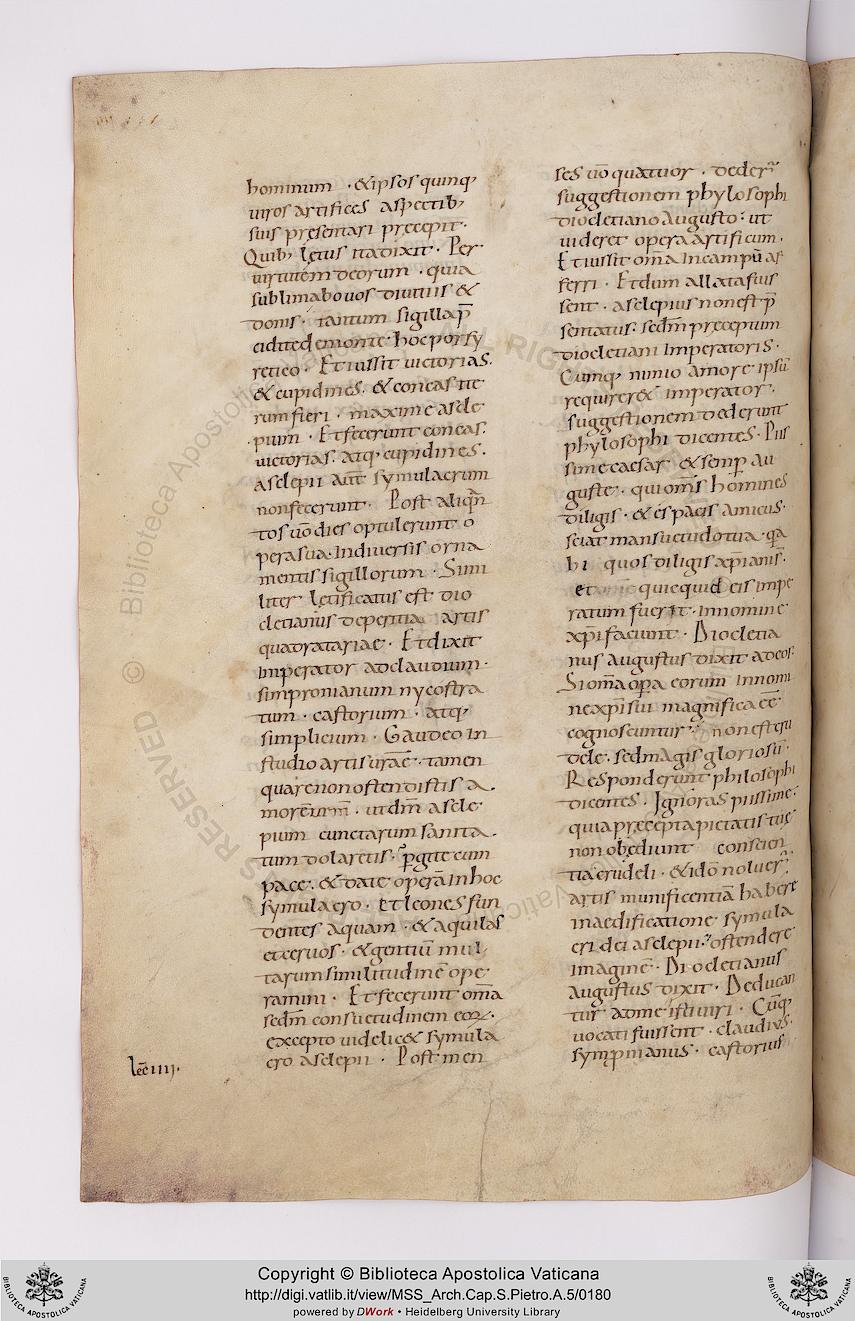 hominum · &ipsos quinq;
uiros artifices aspectib;
suis presentari precepit·
Quib; letus ita dixit · Per
uirtutem deorum · quia
sublimabo uos diuitiis &
donis · tantum sigilla p̄
cidite de monte · hoc porfy
retico · Et iussit uictorias·
& cupidines · & concas ite
rum fieri · maxime ascle
pium · Et fecerunt concas·
uictorias · atq; cupidines·
asclepii aut̄ symulacrum
non fecerunt · Post aliqn̄
tos uo͞ dies optulerunt o
pera sua · In diuersis orna
mentis sigillorum · Simi
liter letificatus est dio
cletianus de peritia artis
quadratariae · Et dixit
imperator ad claudium·
simpronianum nycostra
tum · castorium · atq;
simplicium · Gaudeo in
studio artis urae͞ · tamen
quare non ostendistis a·
morem · ut dm̄ ascle
pium cunctarum sanita·
tum dolaretis · pgite cum
pace · & date operā in hoc
symulacro · et leones fun
dentes aquam · & aquilas
et ceruos · & gentiū mul
tarum similitudinē ope
ramini · Et fecerunt om̄a
sedm̄ consuetudinem eoꝝ·
excepto uidelic& symula
cro asclepii · Post men
lec̄ IIII·
ses uo͞ quattuor · deder̄
suggestionem phylosophi
diocletiano Augusto · ut
uideret opera artificum·
Et iussit om̄a In campū af
ferri · Et dum allata fuis
sent · asclepius non est p̄
sentatus · sedm̄ preceptum
diocletiani Imperatoris·
Cumq; nimio amore ipsū
requirer& imperator·
suggestionem dederunt
phylosophi dicentes · Piis
sime caesar & semp au
guste · qui om̄s homines
diligis · & es pacis amicus·
sciat mansuetudo tua · qa
hi quos diligis xp̄iani s̄·
et quicquid eis impe
ratum fuerit · in nomine
xp̄i faciunt · Diocletia
nus Augustus dixit ad eos·
Si om̄a opa eorum in nomi
ne xp̄i sui magnifica ee͞
cognoscuntur · non est cru
dele · sed magis gloriosū·
Responderunt philosophi
dicentes · Ignoras piissime·
quia precepta pietatis tue
non obediunt conscien
tia crudeli · & ido͞ noluer̄
artis munificentiā habere
in aedificatione symula
cri dei asclepii · ostendere
imaginē · Diocletianus
Augustus dixit · Deducan
tur ad me isti uiri · Cūq;
uocati fuissent · claudius·
sympnianus · castorius
Copyright © Biblioteca Apostolica Vaticana
http://digi.vatlib.it/view/MSS_Arch.Cap.S.Pietro.A.5/0180
powered by DWork • Heidelberg University Library